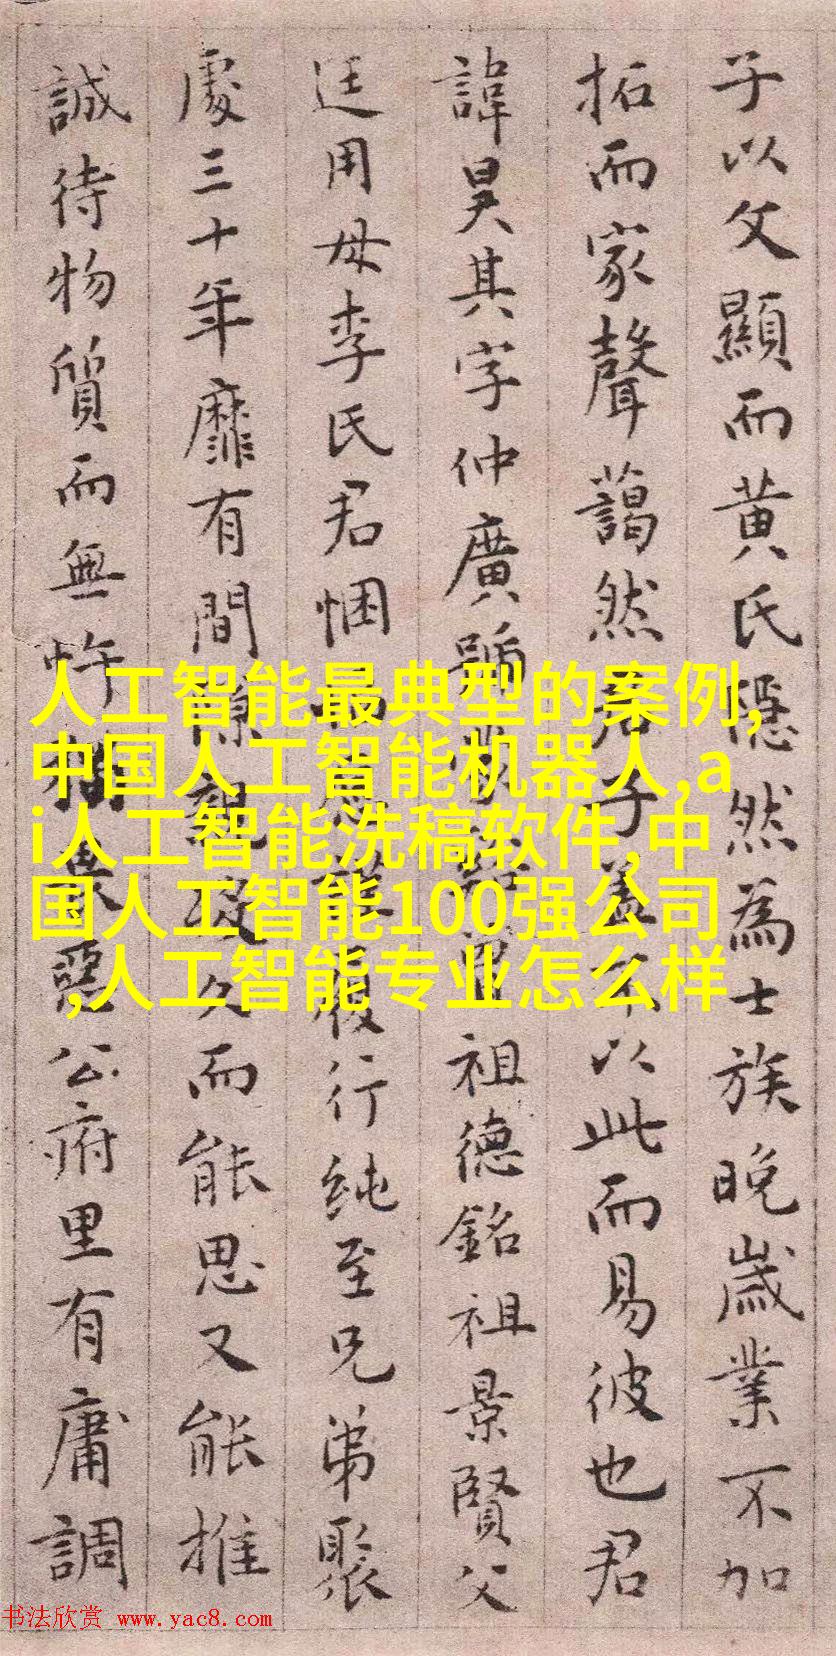 子以父顯而黄氏隱然為士族晚歲業不加
拓而家聲藹然君子以此而易彼也君
諱昊其字仲廣號祖德銘祖景賢父
廷用母李氏君悃履行純至兄弟聚
處三十年靡有間隙久而能思又能推
誠待物質而無忤惡公府里有庸調
人工智能最典型的案例,
中国人工智能机器人,a
i人工智能洗稿软件,中
国人工智能100强公司
,人工智能专业怎么样
书法欣赏 www.yac8.com